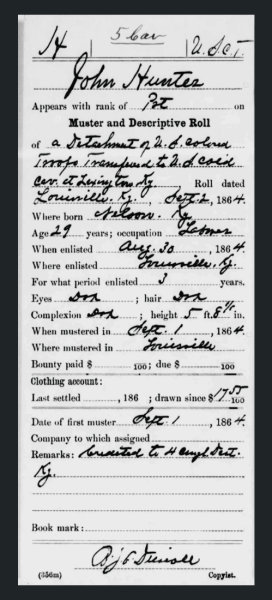 H | 5 Cav | U.S.C.T.
John Hunter
Appears with rank of Pvt on
Muster and Descriptive Roll
of a Detachment of U.S. colored
Troops Transferred to U.S. col'd
cav. at Lexington Ky. Roll dated
Louisville, Ky. Sept. 2, 1864.
Where born Nelson, Ky.
Age 29 years; occupation Laborer
When enlisted Aug. 30, 1864.
Where enlisted Louisville, Ky.
For what period enlisted 3 years.
Eyes Drk; hair Drk
Complexion Drk; height 5 ft. 8 in.
When mustered in Sept. 1, 1864.
Where mustered in Louisville
Bounty paid $ 100; due $ 100
Clothing account:
Last settled, 186 ; drawn since $ 17 55/100
Date of first muster Sept. 1, 1864
Company to which assigned
Remarks: Credited to 4 Dist.
Ky.
Book mark:
(356m) Copyist.